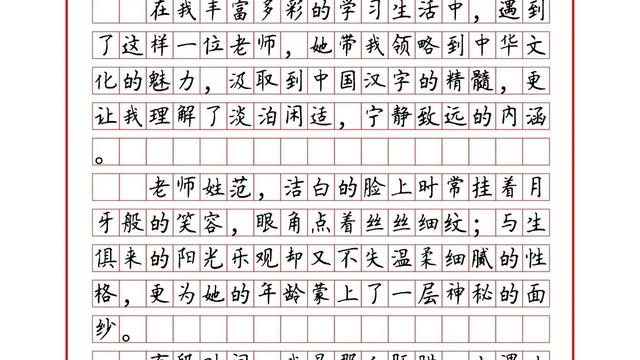 在我丰富多彩的学习生活中，遇到
了这样一位老师，她带我领略到中华文
化的魅力，汲取到中国汉字的精髓，更
让我理解了淡泊闲适，宁静致远的内涵
。
老师姓范，洁白的脸上时常挂着月
牙般的笑容，眼角点着丝丝细纹；与生
俱来的阳光乐观却又不失温柔细腻的性
格，更为她的年龄蒙上了一层神秘的面
纱。